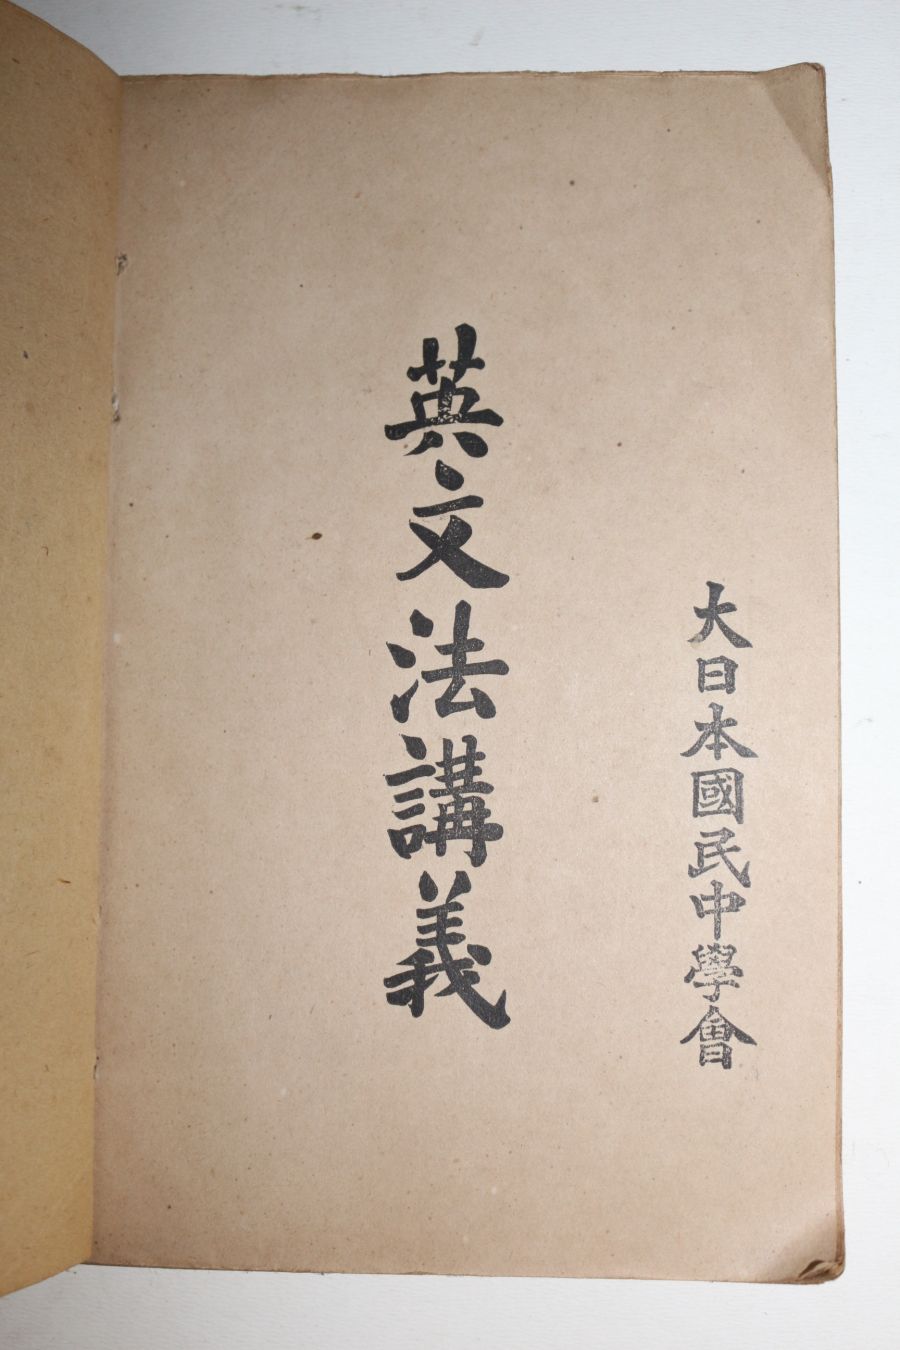 大日本國民中學會
英文法講義